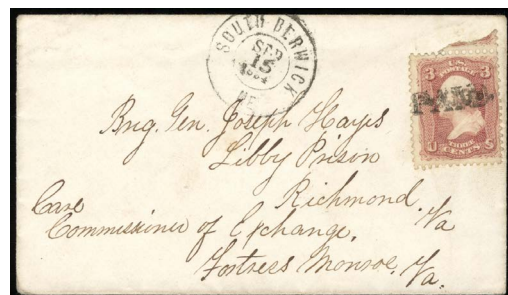 SOUTH BERWICK
SEP
15
ME
U.S. POSTAGE
3 3
PAID
THREE CENTS
U S
Brig. Gen. Joseph Hayes
Libby Prison
Richmond
Va
Care
Commissioner of Exchange,
Fortress Monroe, Va.